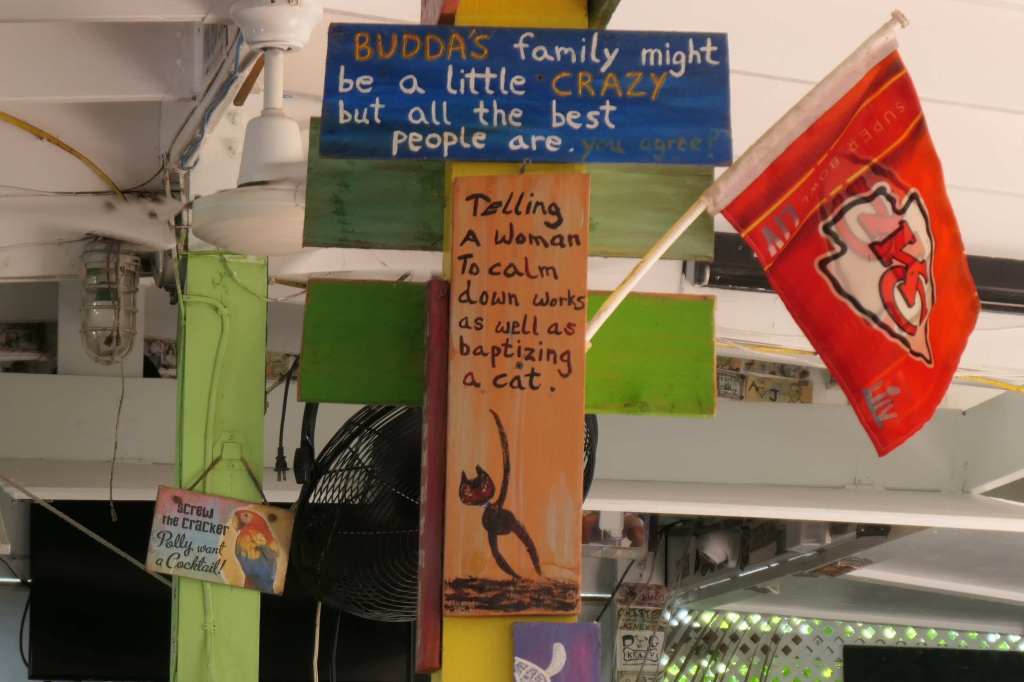 BUDDA'S family might
be a little CRAZY
but all the best
people are. you agree?
Telling
A Woman
To calm
down works
as well as
baptizing
a cat.
SUPER BOWL
LIV
KC
LIV
Screw
the Cracker
Polly want
a Cocktail!